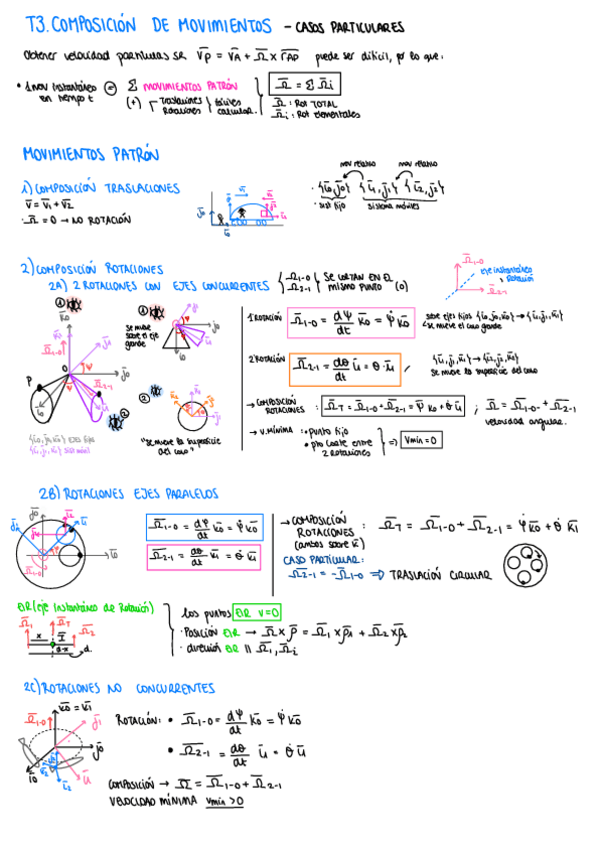 T3. COMPOSICIÓN DE MOVIMIENTOS - CASOS PARTICULARES
Obtener velocidad par fórmulas SR V̄p = V̄A + Ω̄ x r̄AP puede ser difícil, por lo que:
• 1 mov instantáneo en tiempo t = Σ MOVIMIENTOS PATRÓN
(+) Traslaciones Rotaciones } fáciles calcular.
Ω̄ = Σ Ω̄i
Ω̄ : Rot TOTAL
Ω̄i : Rot elementales
MOVIMIENTOS PATRÓN
1) COMPOSICIÓN TRASLACIONES
V̄ = V̄1 + V̄2
· Ω̄ = 0 → NO ROTACIÓN
mov relativo mov relativo
· {ī0, j̄0} {ī1, j̄1} {ī2, j̄2}
sist fijo sistema móviles
2) COMPOSICIÓN ROTACIONES
2A) 2 ROTACIONES CON EJES CONCURRENTES { Ω̄1-0 Ω̄2-1 { SE CORTAN EN EL MISMO PUNTO (O)
Ω̄1-0
eje instantáneo Rotación
Ω̄2-1
se mueve sobre el eje grande
"se mueve la superficie del cono"
1 ROTACIÓN Ω̄1-0 = dψ/dt k̄0 = ψ̇ k̄0
sobre ejes fijos {ī0, j̄0, k̄0} → {ī1, j̄1, k̄1}
se mueve el cono grande
2 ROTACIÓN Ω̄2-1 = dθ/dt ū = θ̇ · ū
{ī1, j̄1, k̄1} → {ī2, j̄2, k̄2}
se mueve la superficie del cono
→ COMPOSICIÓN ROTACIONES : Ω̄T = Ω̄1-0 + Ω̄2-1 = ψ̇ k̄0 + θ̇ ū ; Ω̄ = Ω̄1-0 + Ω̄2-1
velocidad angular.
→ V. MÍNIMA : • punto fijo
• pto corte entre 2 rotaciones
⇒ Vmin = 0
{ī0, j̄0, k̄0} EJES fijos
{ī1, j̄1, k̄1} sist móvil
2B) ROTACIONES EJES PARALELOS
Ω̄1-0 = dψ/dt k̄0 = ψ̇ k̄0
Ω̄2-1 = dθ/dt k̄1 = θ̇ k̄1
→ COMPOSICIÓN ROTACIONES (ambos sobre k̄) : Ω̄T = Ω̄1-0 + Ω̄2-1 = ψ̇ k̄0 + θ̇ k̄1
CASO PARTICULAR:
Ω̄2-1 = -Ω̄1-0 ⇒ TRASLACIÓN CIRCULAR
EIR (eje Instantáneo de Rotación)
Ω̄1 Ω̄T Ω̄2
x I d-x d
Los puntos EIR V=0
· Posición EIR → Ω̄ x ρ̄ = Ω̄1 x ρ̄1 + Ω̄2 x ρ̄2
· dirección EIR || Ω̄1, Ω̄i
2C) ROTACIONES NO CONCURRENTES
k̄0 = k̄1
Ω̄1-0
ROTACIÓN: • Ω̄1-0 = dψ/dt k̄0 = ψ̇ k̄0
• Ω̄2-1 = dθ/dt ū = θ̇ ū
COMPOSICIÓN → Ω̄ = Ω̄1-0 + Ω̄2-1
VELOCIDAD MÍNIMA Vmín > 0